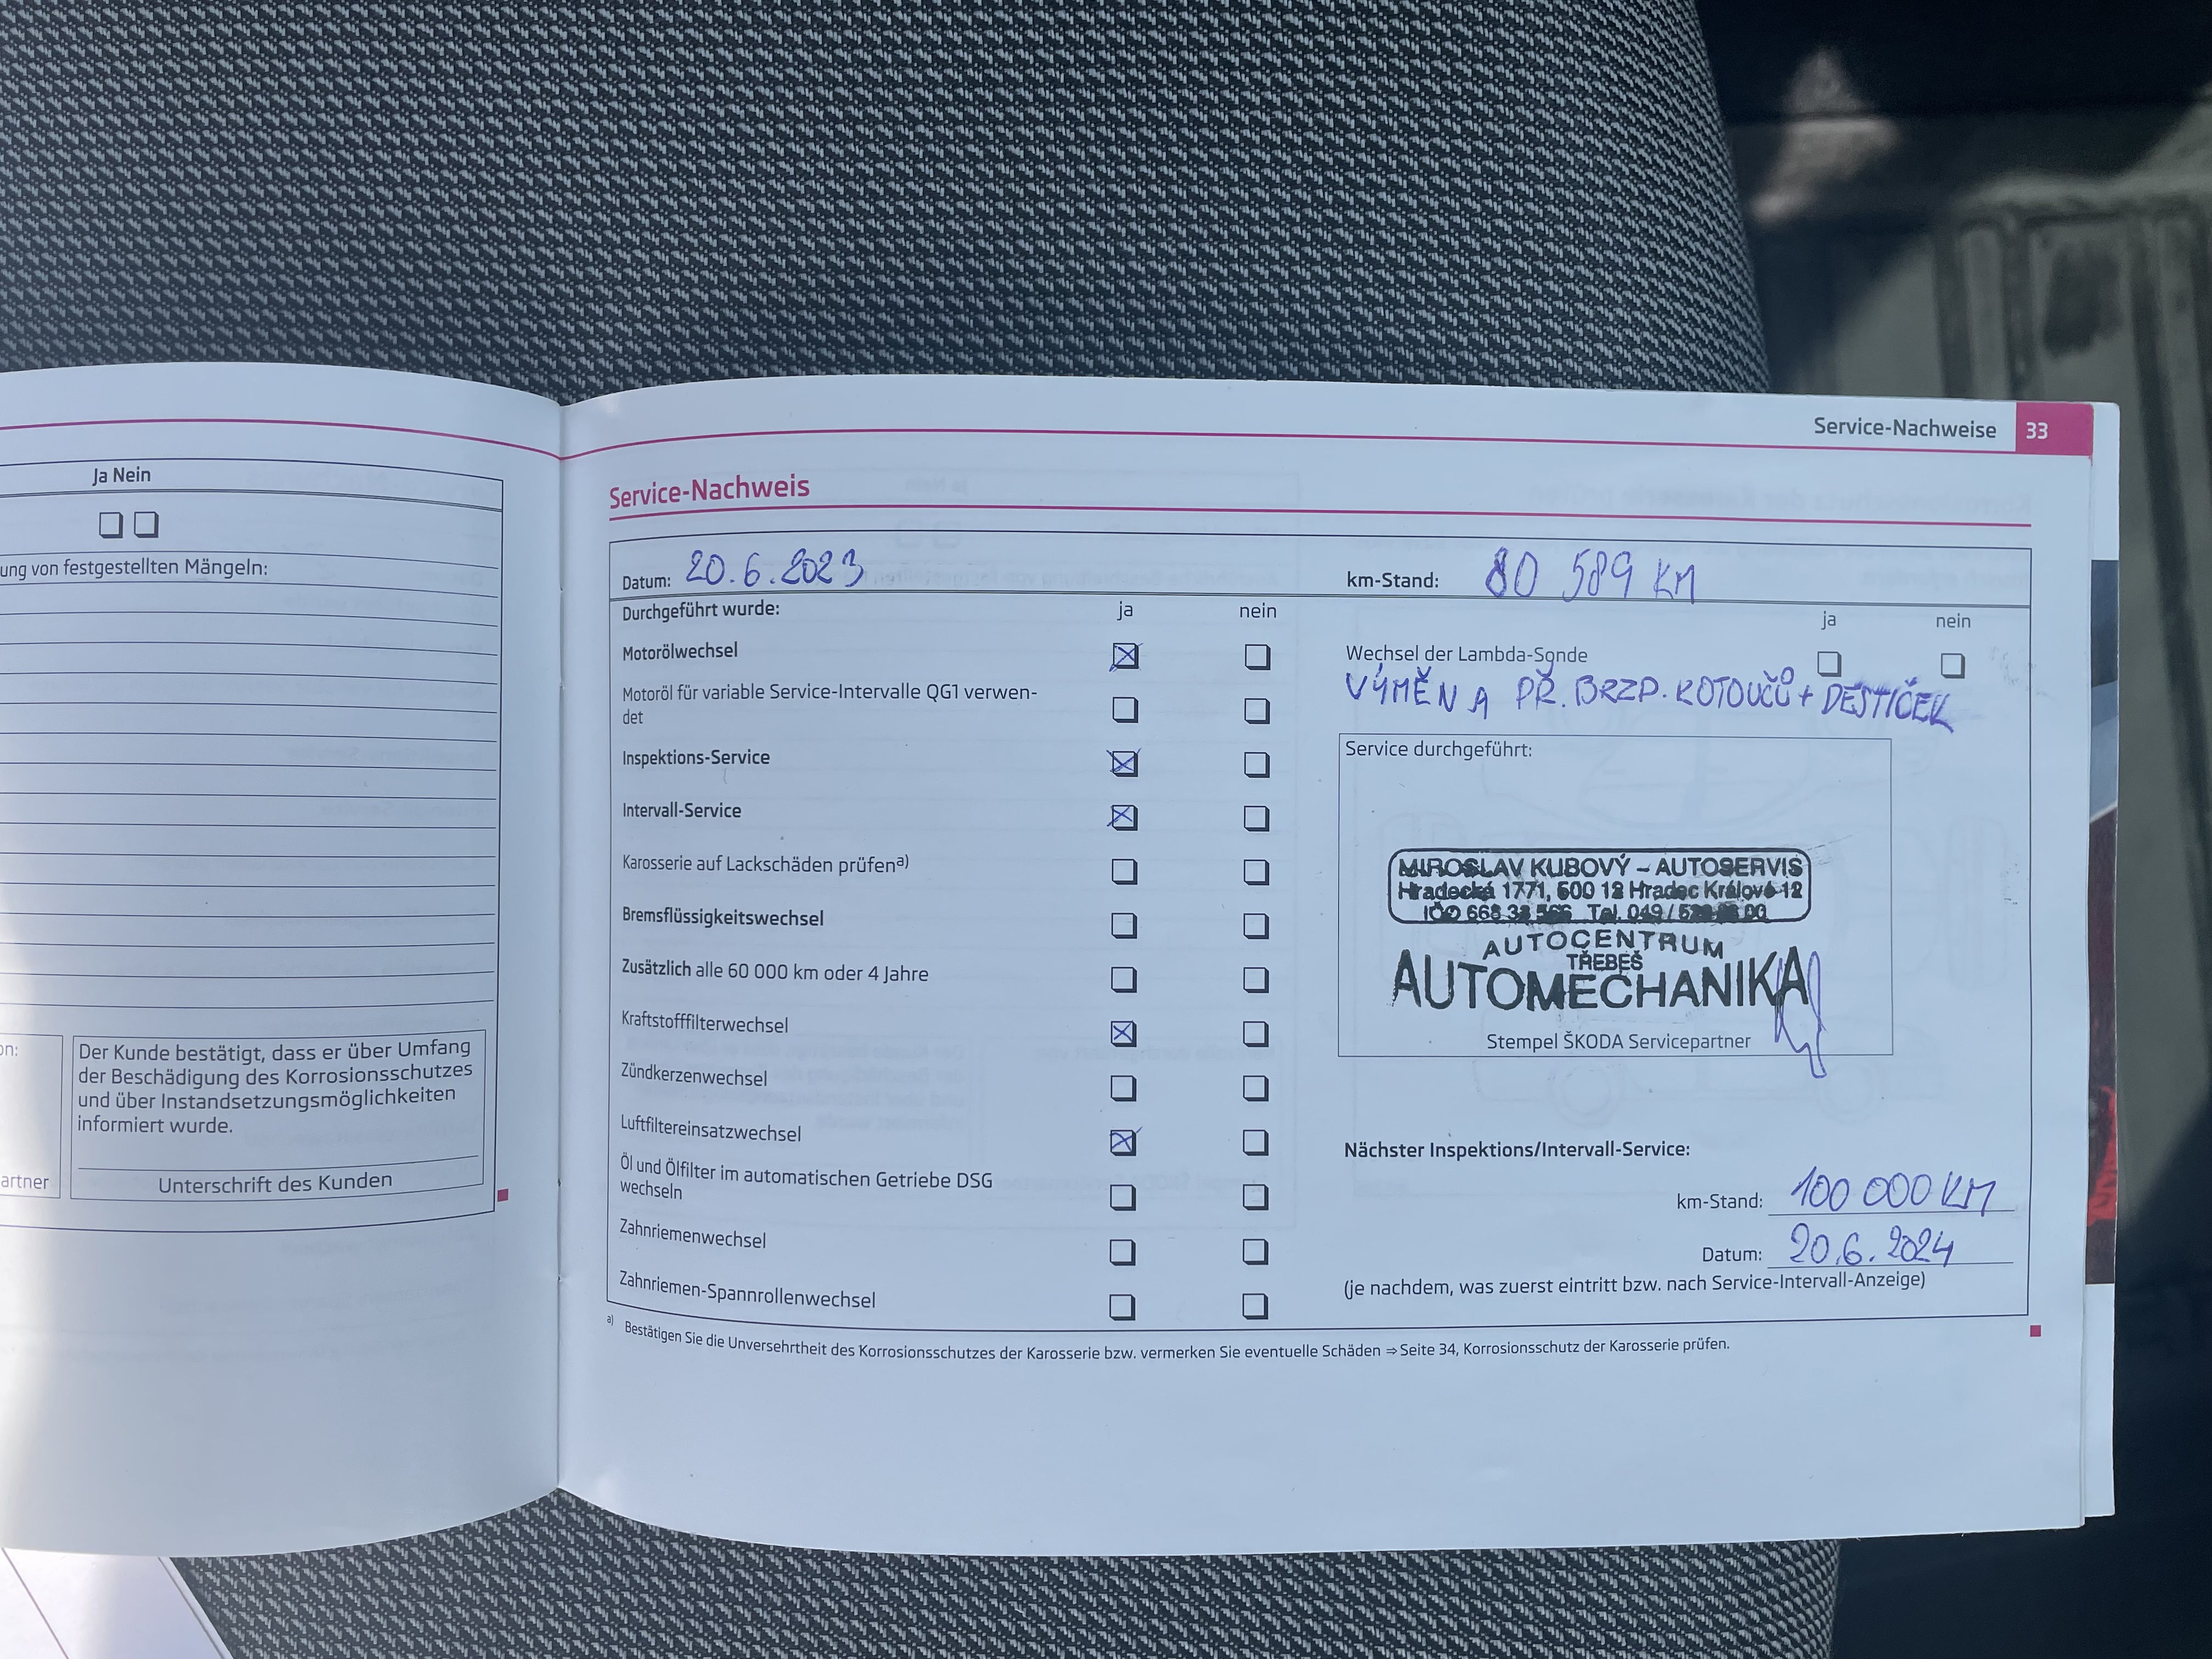 Ja Nein
ung von festgestellten Mängeln:
on:
Der Kunde bestätigt, dass er über Umfang
der Beschädigung des Korrosionsschutzes
und über Instandsetzungsmöglichkeiten
informiert wurde.
artner
Unterschrift des Kunden
Service-Nachweise 33
Service-Nachweis
Datum: 20.6.2023
km-Stand: 80 589 KM
Durchgeführt wurde: ja nein
Motorölwechsel
Motoröl für variable Service-Intervalle QG1 verwen-
det
Inspektions-Service
Intervall-Service
Karosserie auf Lackschäden prüfena)
Bremsflüssigkeitswechsel
Zusätzlich alle 60 000 km oder 4 Jahre
Kraftstofffilterwechsel
Zündkerzenwechsel
Luftfiltereinsatzwechsel
Öl und Ölfilter im automatischen Getriebe DSG
wechseln
Zahnriemenwechsel
Zahnriemen-Spannrollenwechsel
ja nein
Wechsel der Lambda-Sonde
VÝMĚNA PŘ. BRZD. KOTOUČŮ + DESTIČEK
Service durchgeführt:
MIROSLAV KUBOVÝ – AUTOSERVIS
Hradecká 1771, 500 12 Hradec Králové 12
IČO 668 Tel. 049 /
AUTOCENTRUM
TŘEBEŠ
AUTOMECHANIKA
Stempel ŠKODA Servicepartner
Nächster Inspektions/Intervall-Service:
km-Stand: 100 000 KM
Datum: 20.6.2024
(je nachdem, was zuerst eintritt bzw. nach Service-Intervall-Anzeige)
a) Bestätigen Sie die Unversehrtheit des Korrosionsschutzes der Karosserie bzw. vermerken Sie eventuelle Schäden ⇒ Seite 34, Korrosionsschutz der Karosserie prüfen.